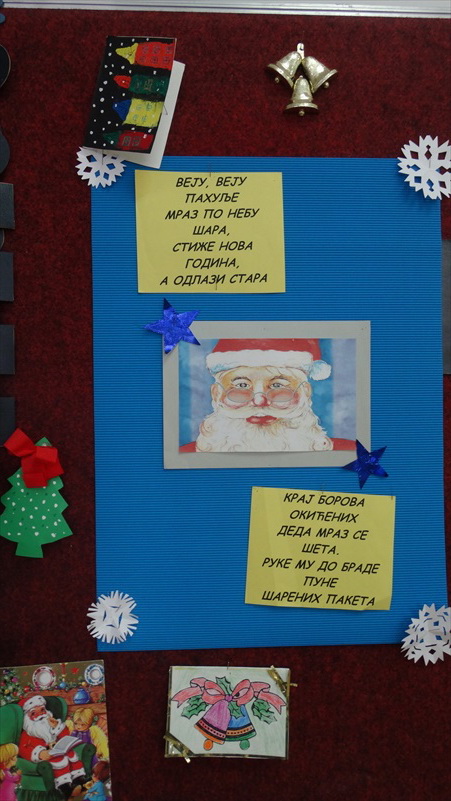 ВЕЈУ, ВЕЈУ
ПАХУЉЕ
МРАЗ ПО НЕБУ
ШАРА,
СТИЖЕ НОВА
ГОДИНА,
А ОДЛАЗИ СТАРА
КРАЈ БОРОВА
ОКИЋЕНИХ
ДЕДА МРАЗ СЕ
ШЕТА.
РУКЕ МУ ДО БРАДЕ
ПУНЕ
ШАРЕНИХ ПАКЕТА